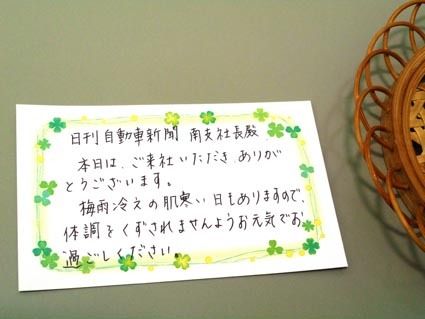 日刊自動車新聞 南支社長殿
本日は、ご来社いただき、ありが
とうございます。
梅雨冷えの肌寒い日もありますので、
体調をくずされませんようお元気でお
過ごしください。